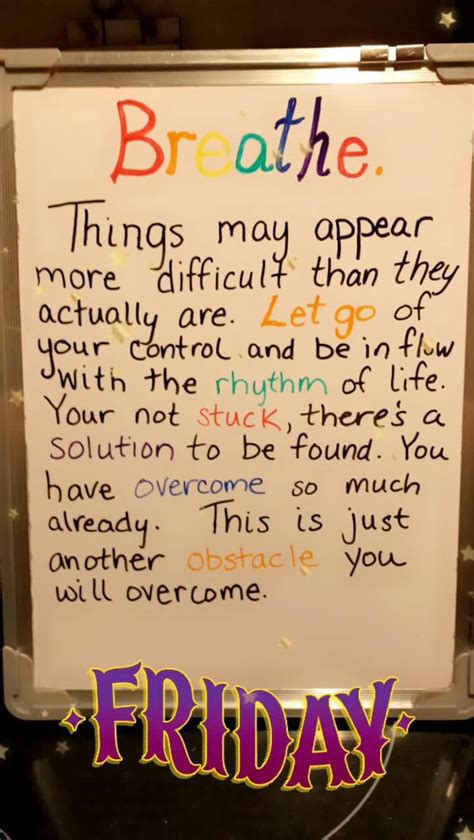 Breathe.
Things may appear
more difficult than they
actually are. Let go of
your control and be in flow
with the rhythm of life.
Your not stuck, there's a
solution to be found. You
have overcome so much
already. This is just
another obstacle you
will overcome.
FRIDAY